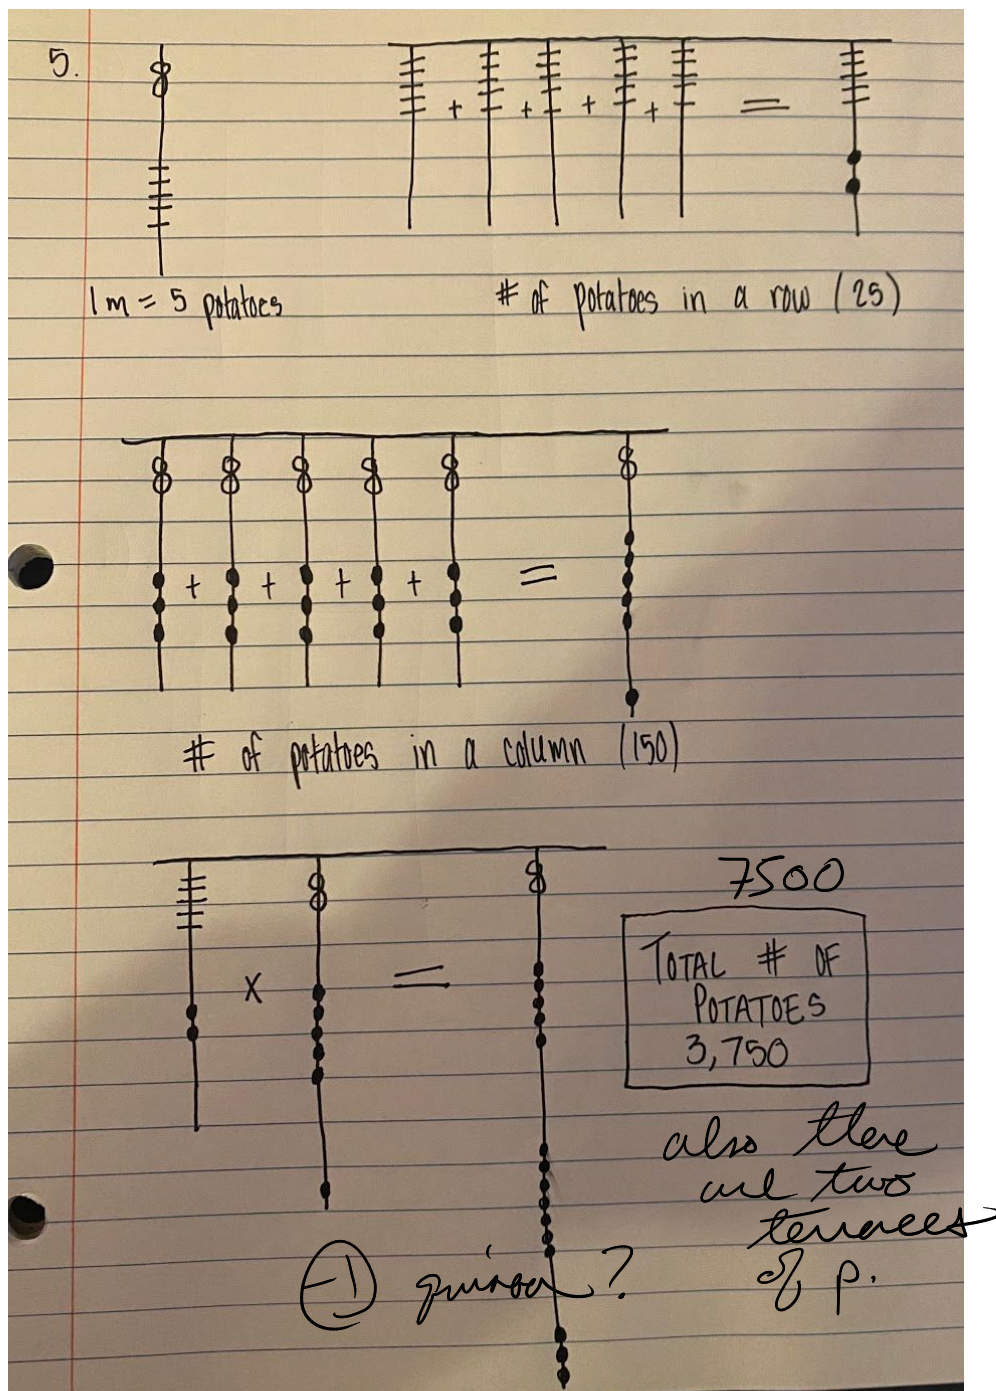 5.
+ + + + =
1m = 5 potatoes
# of potatoes in a row (25)
+ + + + =
# of potatoes in a column (150)
x =
7500
TOTAL # OF
POTATOES
3,750
also there
are two
terraces
of p.
-1 quinoa?